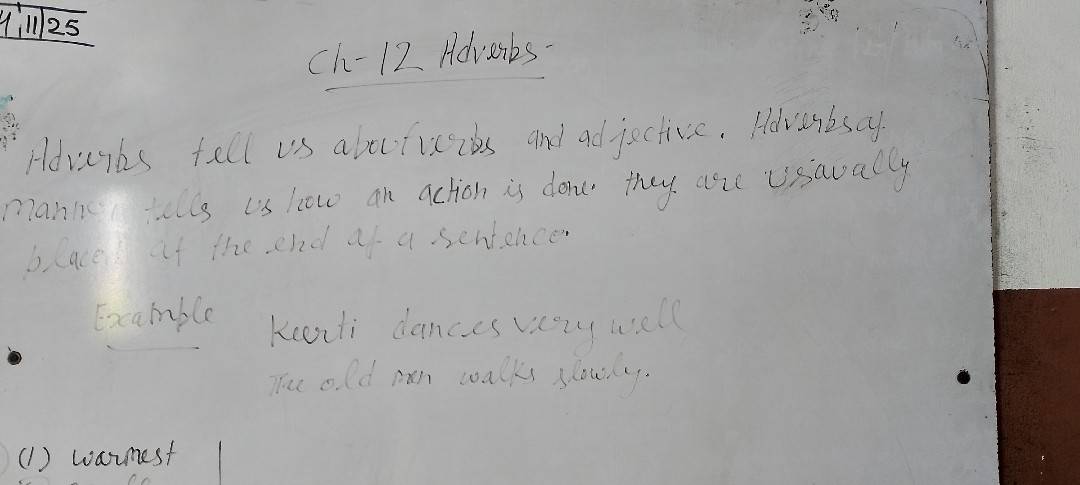 11/25
Ch-12 Adverbs-
Adverbs tell us about verbs and adjective. Adverbs of
manner tells us how an action is done. they are usavally
placed at the end of a sentence.
Example
Keerti dances very well
The old men walks slowly.
(1) warmest